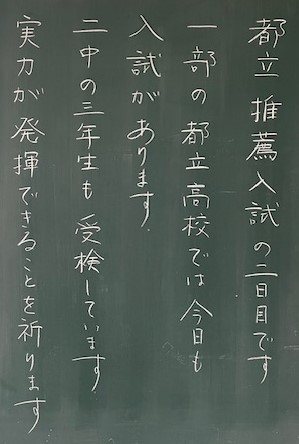 都立 推薦入試の二日目です
一部の都立高校では今日も
入試があります.
二中の三年生も 受検しています.
実力が発揮できることを祈ります